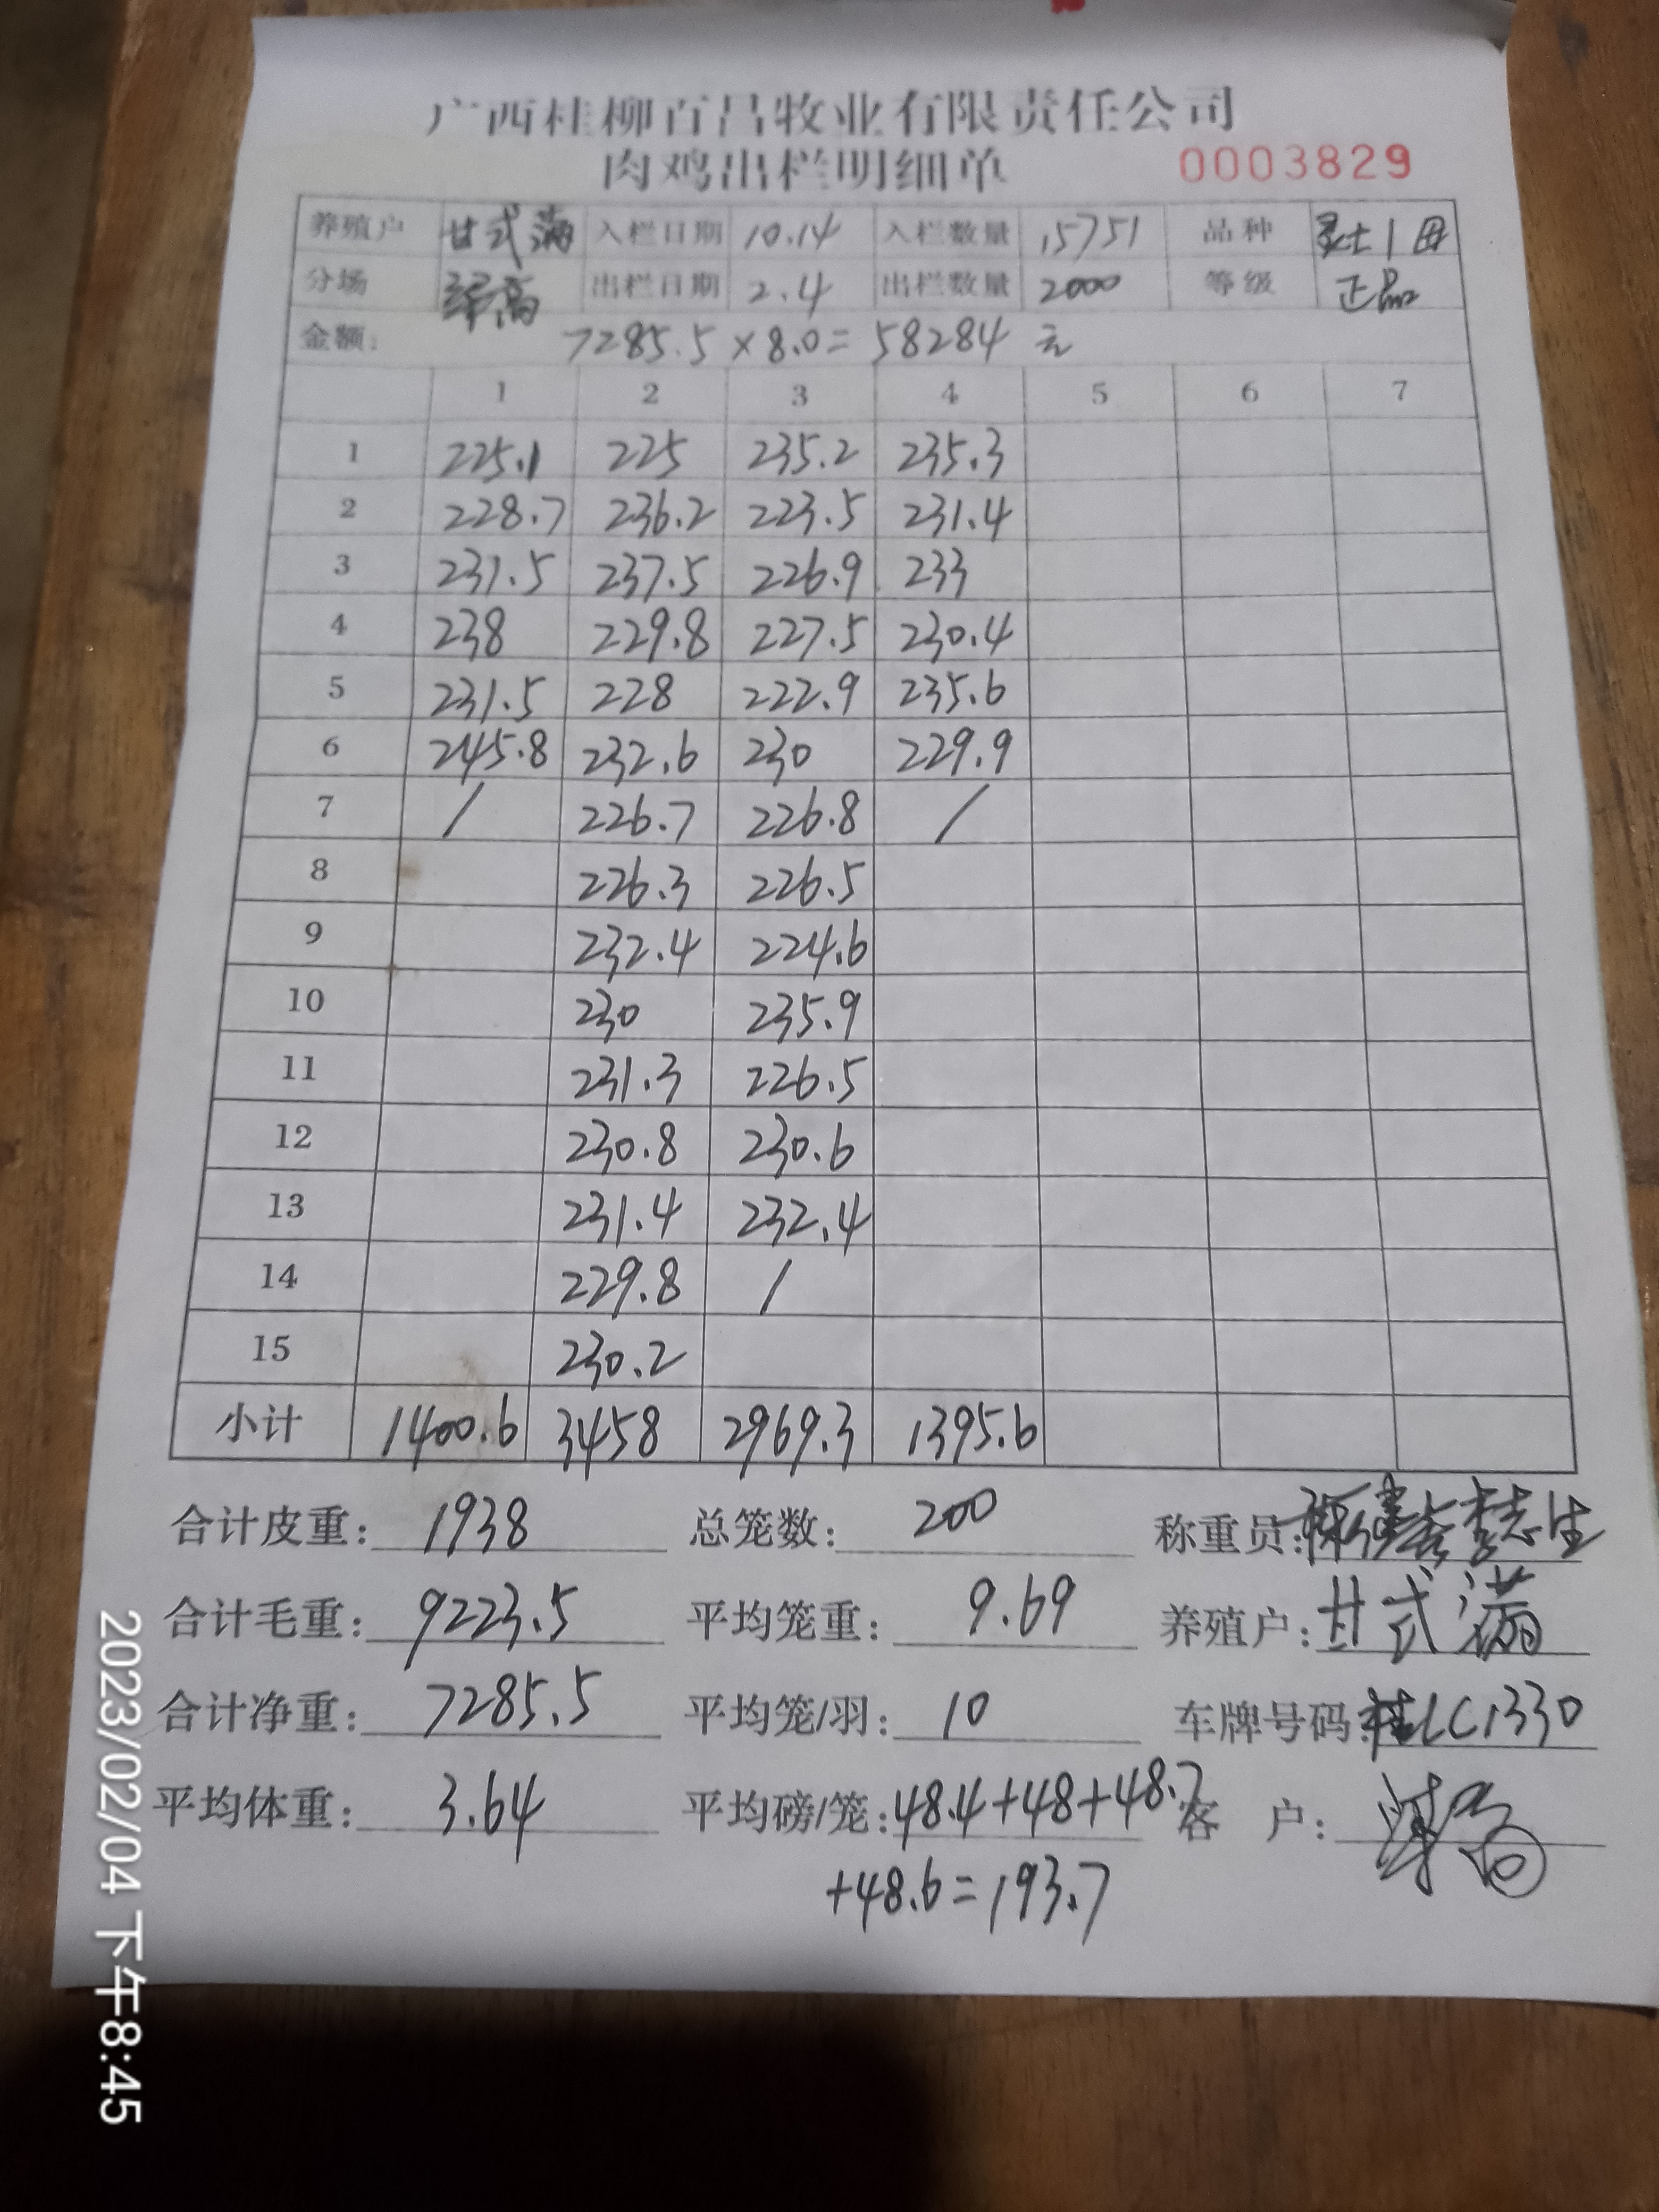 广西桂柳百昌牧业有限责任公司
肉鸡出栏明细单 0003829
养殖户 甘式满 入栏日期 10.14 入栏数量 15751 品种
分场 出栏日期 2.4 出栏数量 2000 等级 正品
金额: 7285.5×8.0=58284 元
1 2 3 4 5 6 7
1 225.1 225 235.2 235.3
2 228.7 236.2 223.5 231.4
3 231.5 237.5 226.9 233
4 238 229.8 227.5 230.4
5 231.5 228 222.9 235.6
6 245.8 232.6 230 229.9
7 / 226.7 226.8 /
8 226.3 226.5
9 232.4 224.6
10 230 235.9
11 231.3 226.5
12 230.8 230.6
13 231.4 232.4
14 229.8 /
15 230.2
小计 1400.6 3458 2969.3 1395.6
合计皮重: 1938 总笼数: 200 称重员: 李志生
合计毛重: 9223.5 平均笼重: 9.69 养殖户: 甘式满
合计净重: 7285.5 平均笼/羽: 10 车牌号码: 桂LC1330
平均体重: 3.64 平均磅/笼: 48.4+48+48.7 客 户:
+48.6=193.7
2023/02/04 下午8:45